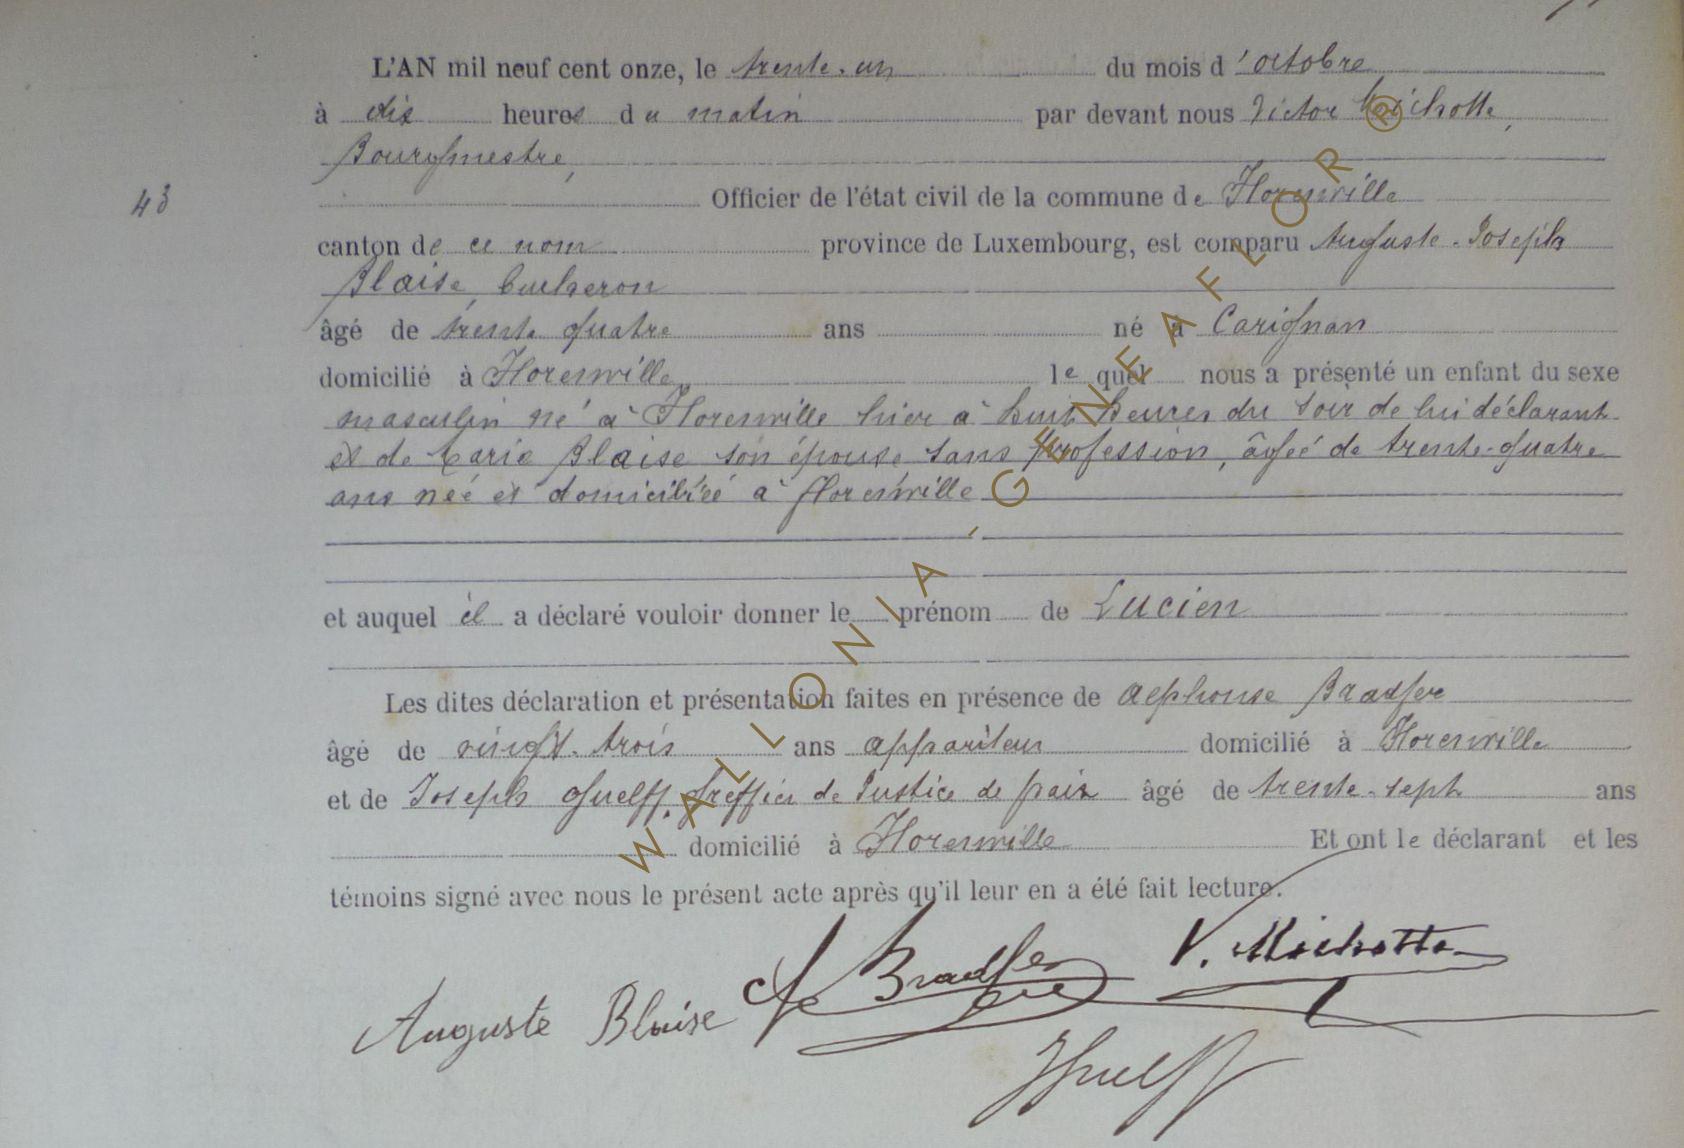 L'AN mil neuf cent onze, le trente-un du mois d'octobre
à dix heures du matin par devant nous Victor Michotte,
Bourgmestre,
43
Officier de l'état civil de la commune de Florenville
canton de ce nom province de Luxembourg, est comparu Auguste-Joseph
Blaise, bucheron
âgé de trente quatre ans né à Carignan
domicilié à Florenville, lequel nous a présenté un enfant du sexe
masculin né à Florenville hier à huit heures du soir de lui déclarant
et de Marie Blaise son épouse sans profession, âgée de trente-quatre
ans née et domiciliée à Florenville
et auquel il a déclaré vouloir donner le prénom de Lucien
Les dites déclaration et présentation faites en présence de Alphonse Bradfer
âgé de vingt-trois ans appariteur domicilié à Florenville
et de Joseph Guelff, greffier de Justice de paix âgé de trente-sept ans
domicilié à Florenville Et ont le déclarant et les
témoins signé avec nous le présent acte après qu'il leur en a été fait lecture.
V. Michotte
Bradfer
Auguste Blaise
JGuelff
WALLONIA-GENEAFLOR®